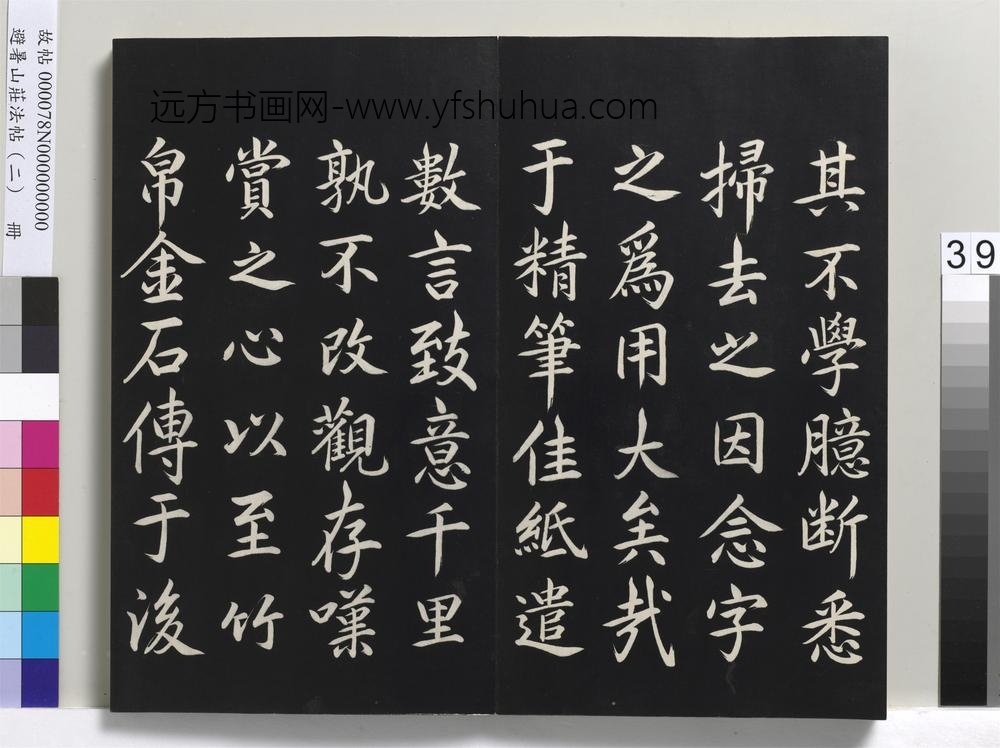 其不學臆断悉
掃去之因念字
之為用大矣㢤
于精筆佳紙遣
數言致意千里
孰不改觀存嘆
賞之心以至竹
帛金石傳于後
远方书画网-www.yfshuhua.com
故帖 000078N000000000
避暑山莊法帖(二) 冊
39